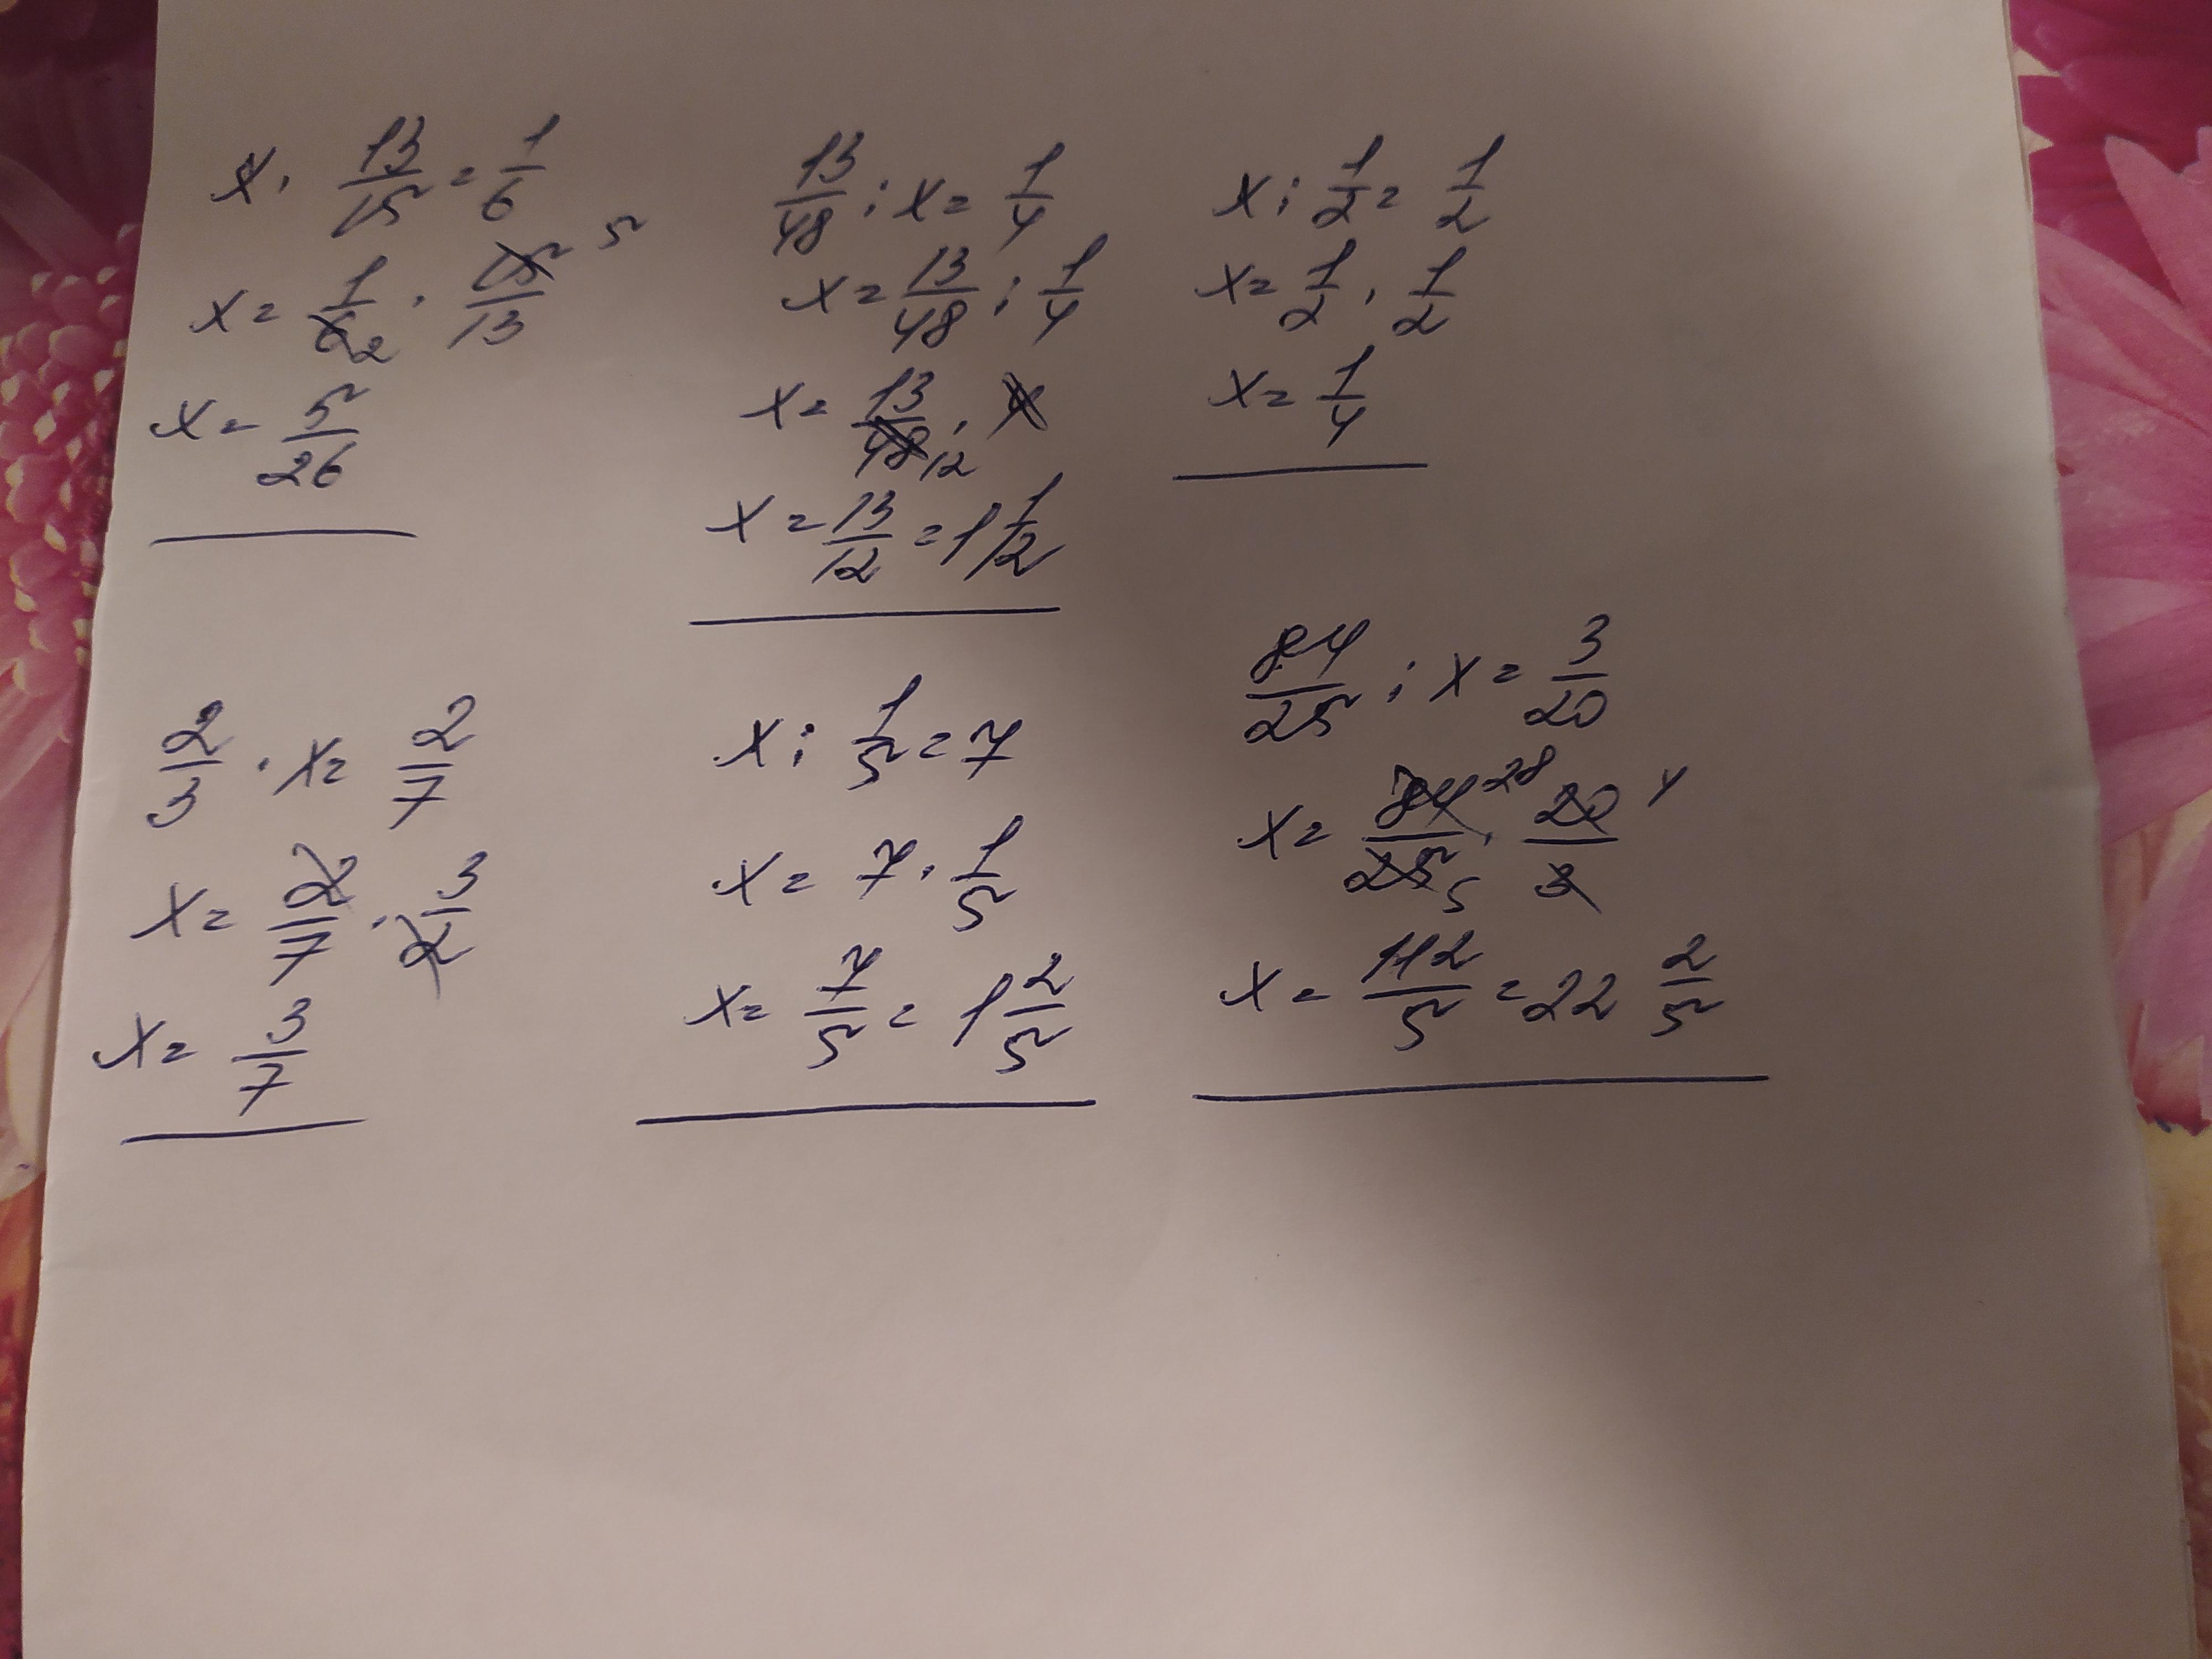 x · 13/15 = 1/6
x = 1/6 2 · 15/13 5
x = 5/26
13/48 : x = 1/4
x = 13/48 : 1/4
x = 13/48 12 · 4
x = 13/12 = 1 1/2
x : 1/2 = 1/2
x = 1/2 · 1/2
x = 1/4
2/3 · x = 2/7
x = 2/7 · 3/2
x = 3/7
x : 1/5 = 7
x = 7 · 1/5
x = 7/5 = 1 2/5
84/25 : x = 3/20
x = 84/25 28 5 · 20/3 4
x = 112/5 = 22 2/5